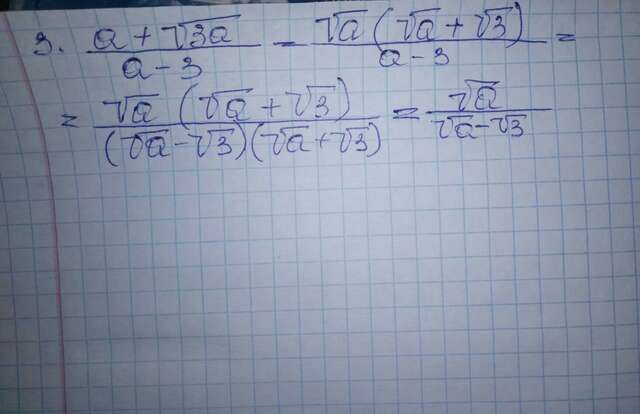 3. \frac{a + \sqrt{3a}}{a - 3} - \frac{\sqrt{a} (\sqrt{a} + \sqrt{3})}{a - 3} =
= \frac{\sqrt{a} (\sqrt{a} + \sqrt{3})}{(\sqrt{a} - \sqrt{3})(\sqrt{a} + \sqrt{3})} = \frac{\sqrt{a}}{\sqrt{a} - \sqrt{3}}